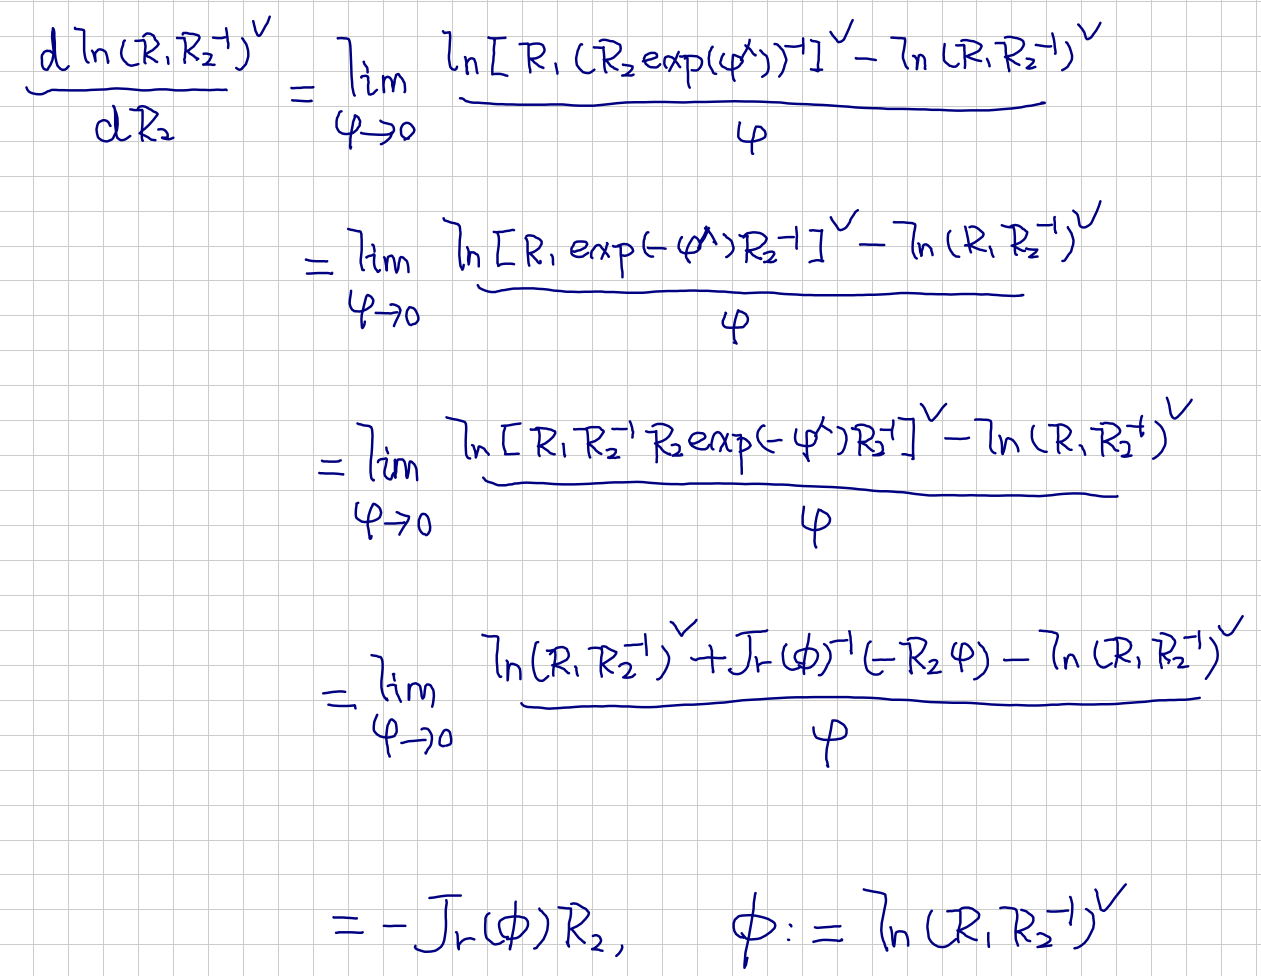 \frac{d \ln(R_1 R_2^{-1})^\vee}{d R_2} = \lim_{\varphi \to 0} \frac{\ln[R_1 (R_2 \exp(\varphi^\wedge))^{-1}]^\vee - \ln(R_1 R_2^{-1})^\vee}{\varphi}
= \lim_{\varphi \to 0} \frac{\ln[R_1 \exp(-\varphi^\wedge) R_2^{-1}]^\vee - \ln(R_1 R_2^{-1})^\vee}{\varphi}
= \lim_{\varphi \to 0} \frac{\ln[R_1 R_2^{-1} R_2 \exp(-\varphi^\wedge) R_2^{-1}]^\vee - \ln(R_1 R_2^{-1})^\vee}{\varphi}
= \lim_{\varphi \to 0} \frac{\ln(R_1 R_2^{-1})^\vee + J_r(\phi)^{-1}(-R_2 \varphi) - \ln(R_1 R_2^{-1})^\vee}{\varphi}
= -J_r(\phi) R_2, \phi := \ln(R_1 R_2^{-1})^\vee